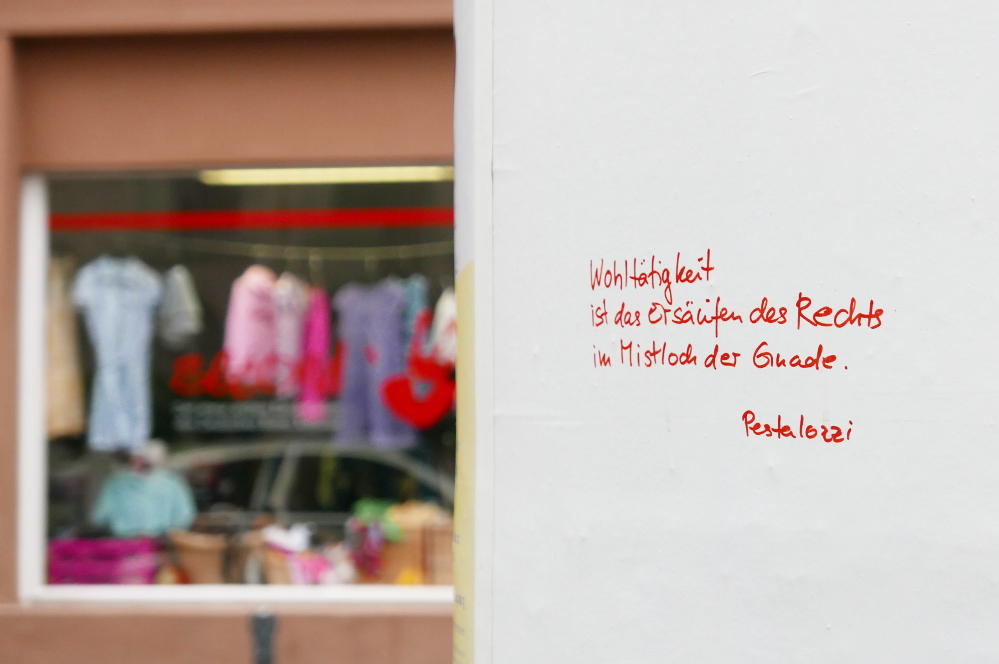 Wohltätigkeit
ist das Ersäufen des Rechts
im Mistloch der Gnade.
Pestalozzi